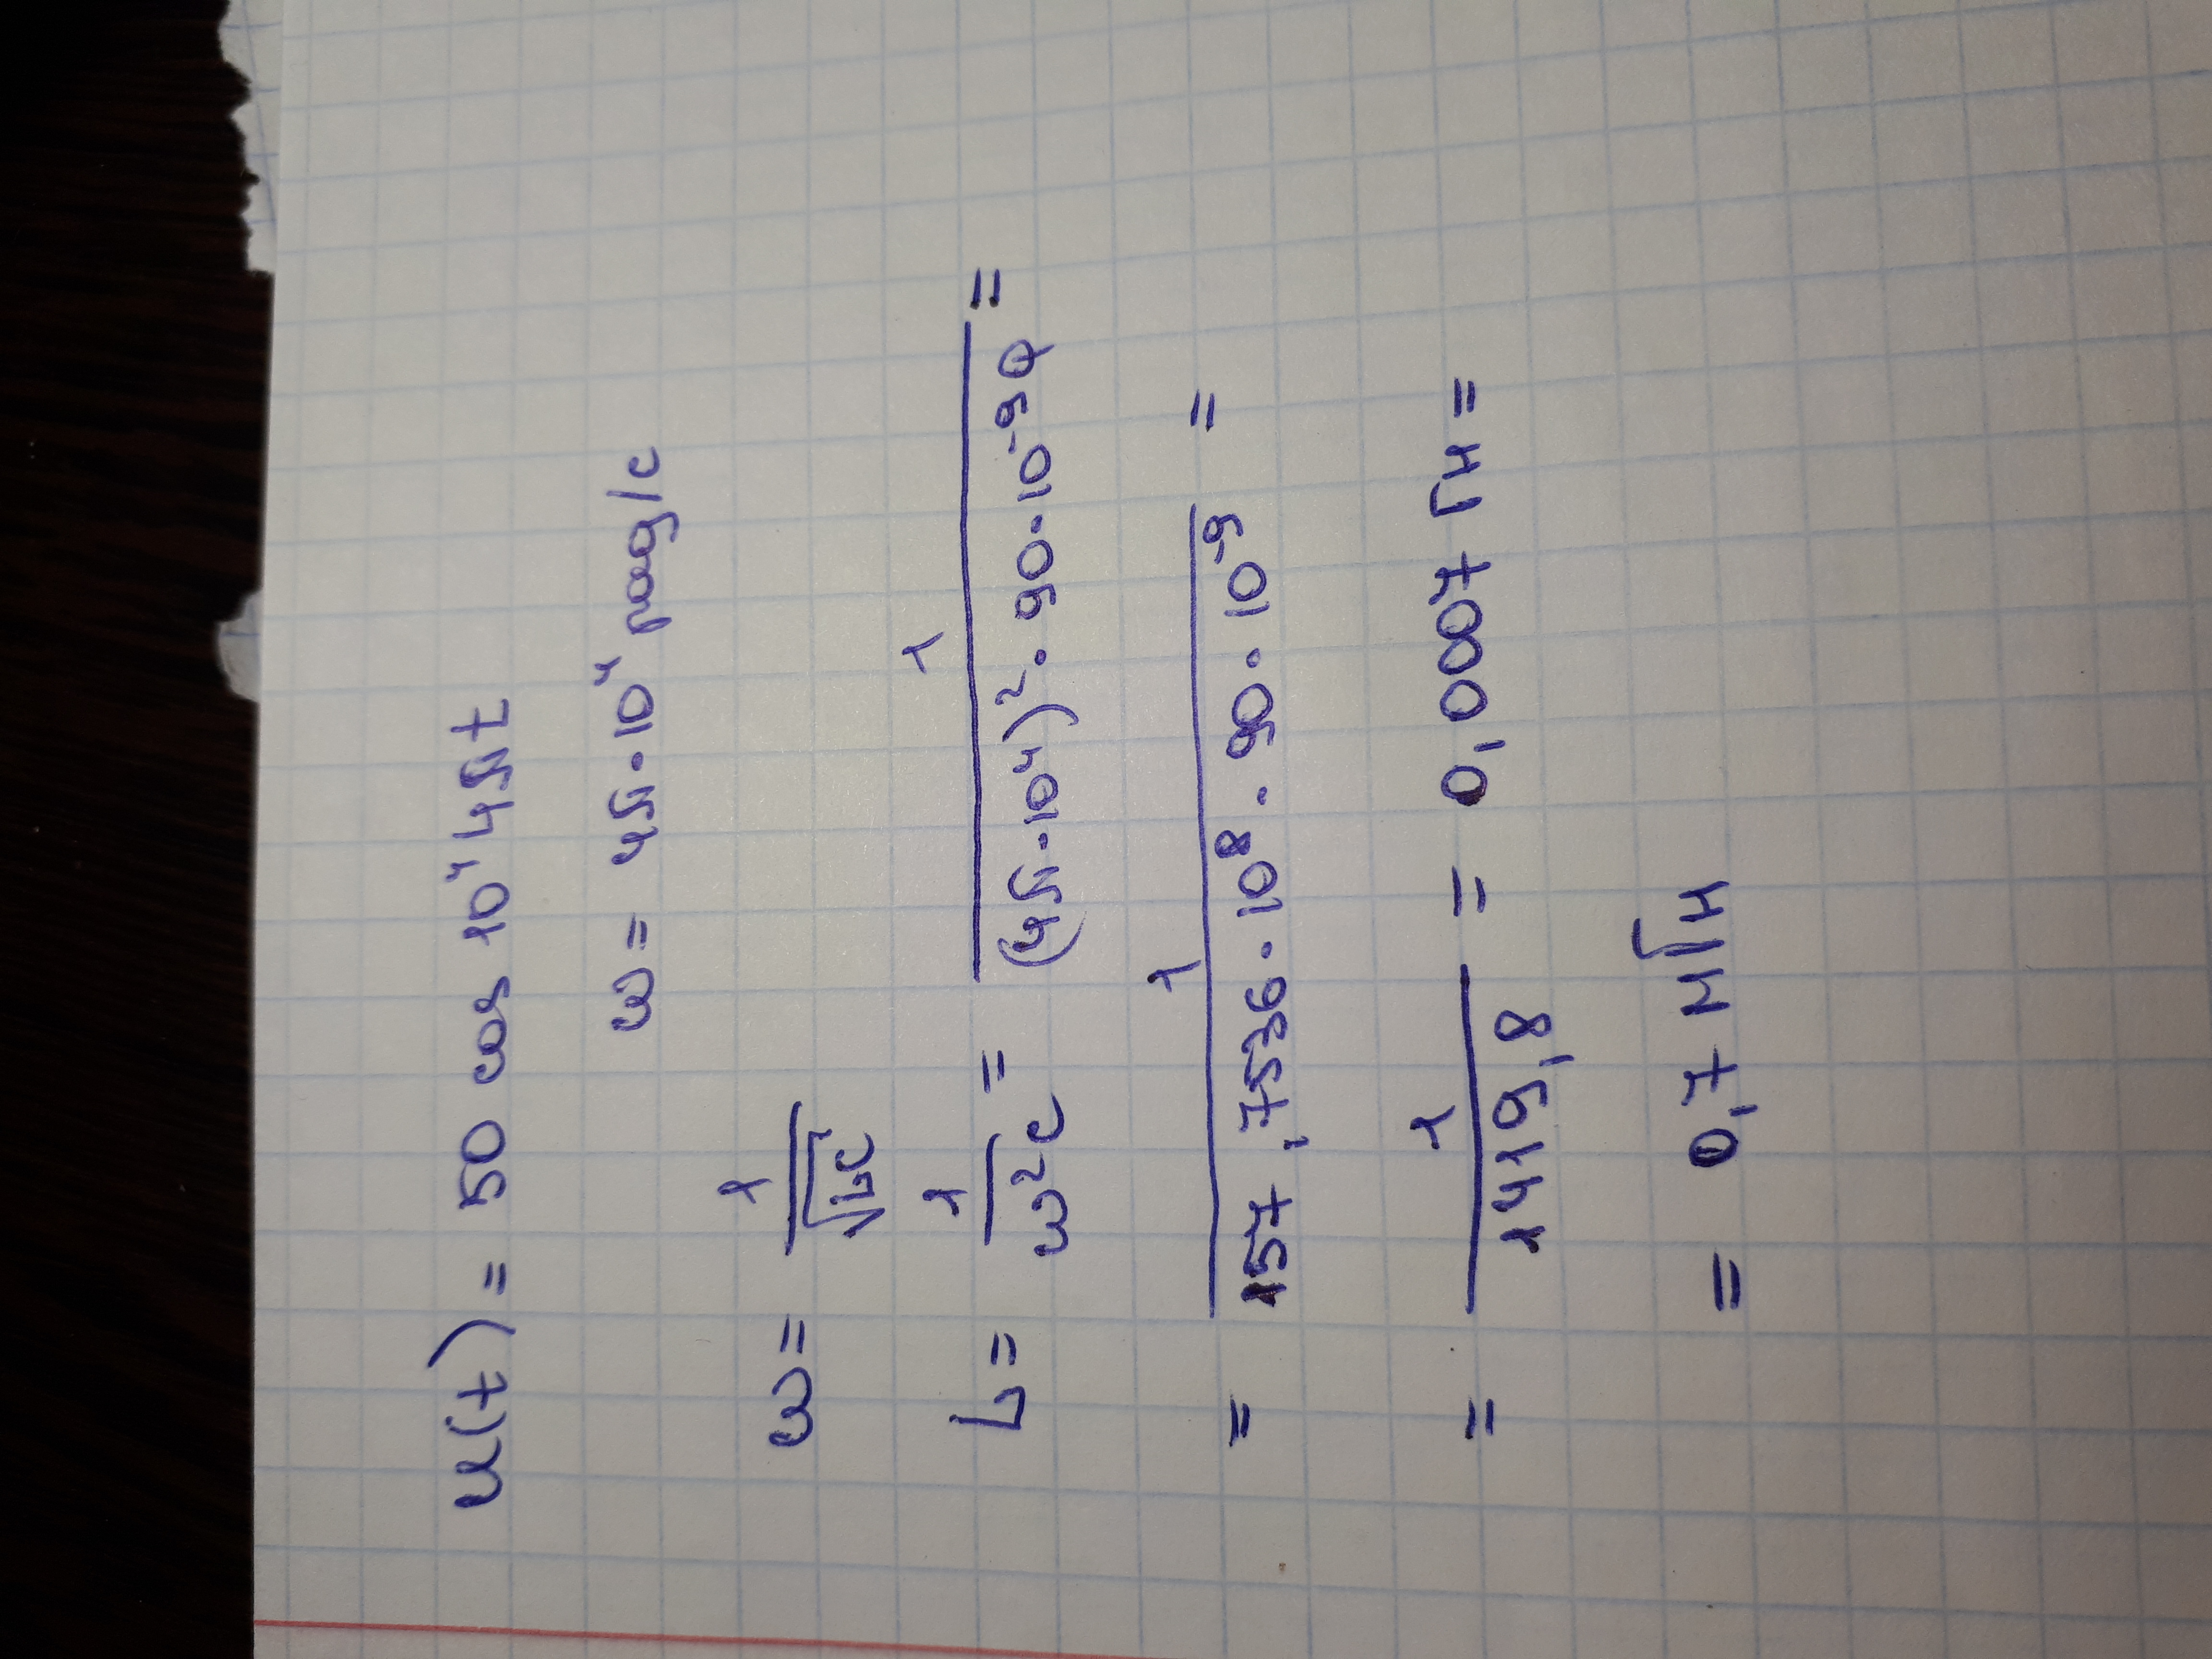 u(t) = 50 cos 10⁴ 4πt
ω = 4π·10⁴ рад/с
ω = 1/√LC
L = 1/ω²C = 1/(4π·10⁴)²·90·10⁻⁹Ф =
= 1/157,7536·10⁸·90·10⁻⁹ =
= 1/1419,8 = 0,0007 Гн =
= 0,7 мГн